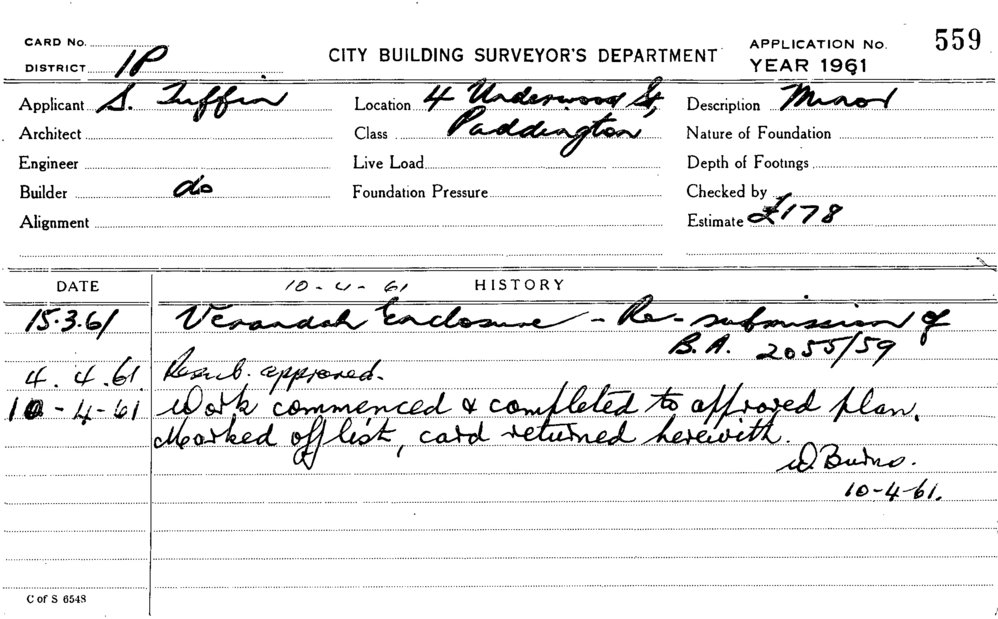 CARD No.
DISTRICT 1P
CITY BUILDING SURVEYOR'S DEPARTMENT
APPLICATION No. 559
YEAR 1961
Applicant S. Tuffin
Location 4 Underwood St,
Description Minor
Architect
Class Paddington
Nature of Foundation
Engineer
Live Load
Depth of Footings
Builder do
Foundation Pressure
Checked by
Alignment
Estimate £178
DATE 10-4-61 HISTORY
15.3.61 Verandah Enclosure - Re-submission of
B.A. 2055/59
4.4.61. Resub. approved.
10-4-61 Work commenced & completed to approved plan.
Marked off list, card returned herewith.
W Burns.
10-4-61.
C of S 6548